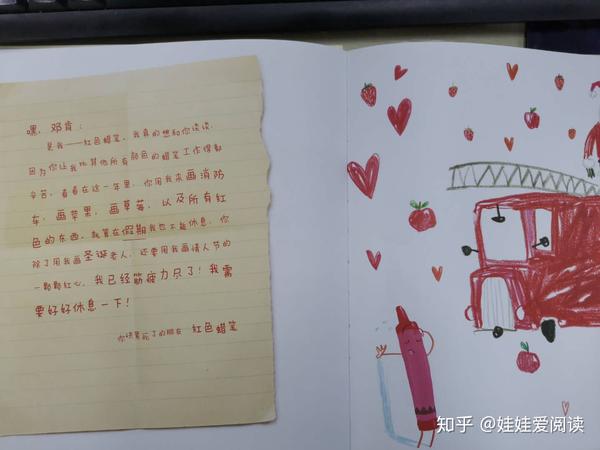 嘿，邓肯：
是我——红色蜡笔，我真的想和你谈谈，
因为你让我比其他所有颜色的蜡笔工作得都
辛苦。看看在这一年里，你用我来画消防
车，画苹果，画草莓，以及所有红
色的东西，就算在假期我也不能休息，你
除了用我画圣诞老人，还要用我画情人节的
一颗颗红心。我已经筋疲力尽了！我需
要好好休息一下！
你快累死了的朋友 红色蜡笔
知乎 @娃娃爱阅读